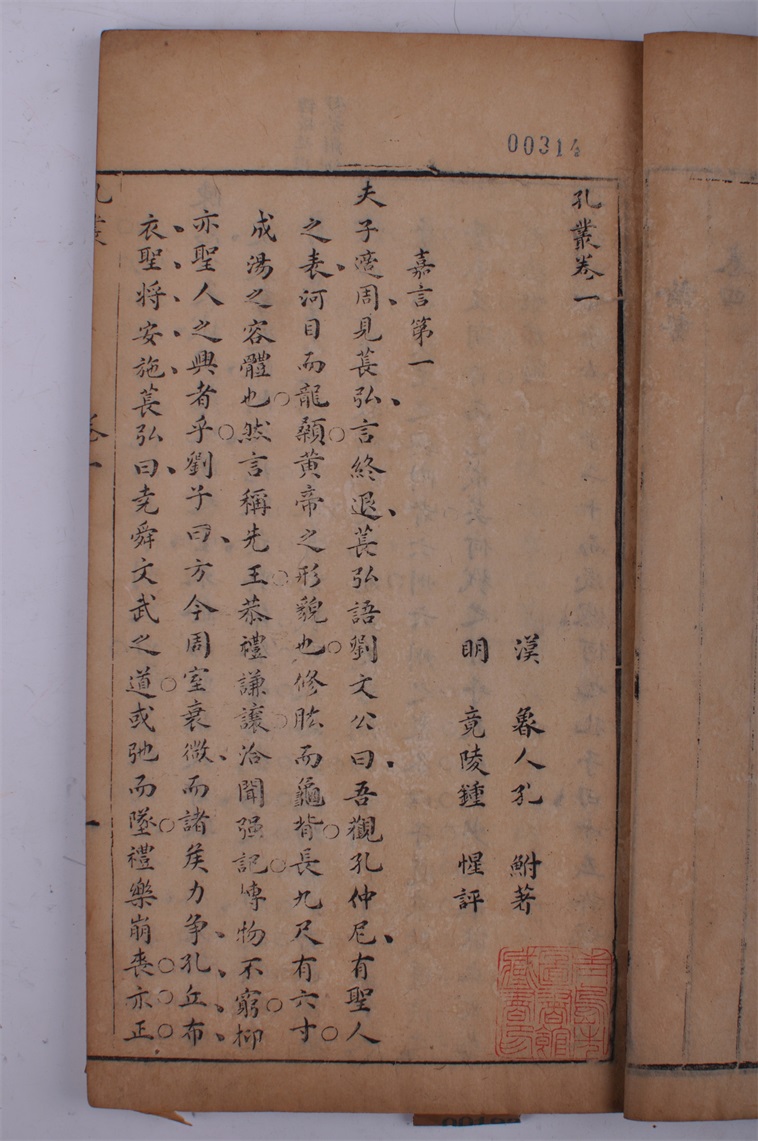 00314
孔叢卷一
漢　魯人孔　鮒著
明　竟陵鍾　惺評
嘉言第一
夫子適周見萇弘言終退萇弘語劉文公曰吾觀孔仲尼有聖人
之表河目而龍顙黃帝之形貌也修肱而龜背長九尺有六寸
成湯之容體也然言稱先王恭禮謙讓洽聞强記博物不窮抑
亦聖人之興者乎劉子曰方今周室衰微而諸矦力争孔丘布
衣聖將安施萇弘曰尭舜文武之道或弛而墜禮樂崩喪亦正
孔叢
卷一
一